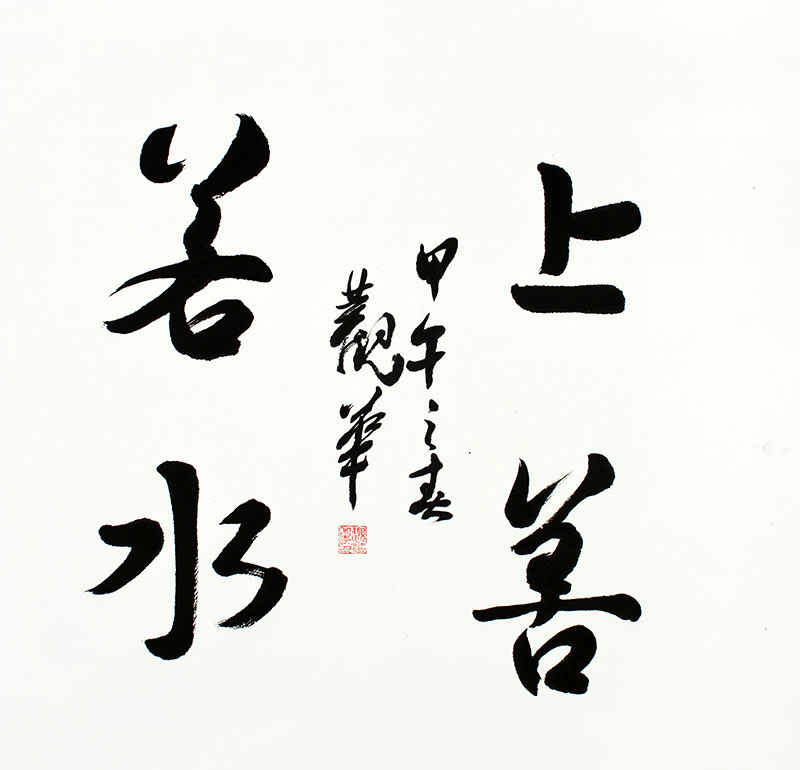 上善
若水
甲午之春
觀華